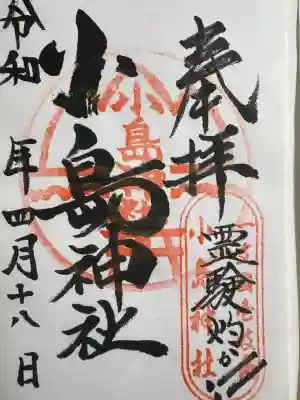 奉拝
霊験灼か!!
小島神社
令和 年四月十八日
小島
神社